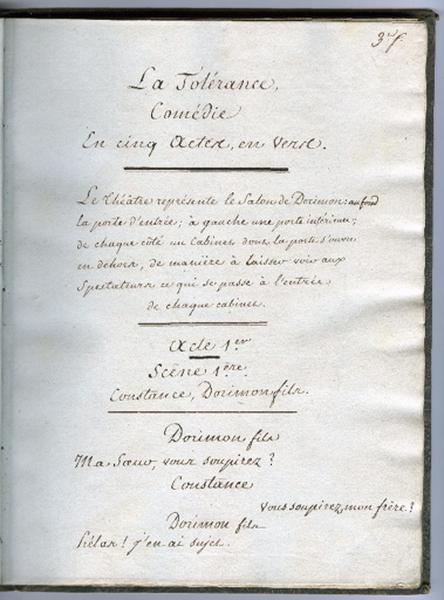 3.f.
La Tolérance,
Comédie
En cinq Actes, en Vers.
Le Théatre représente le Salon de Dorimon: au fond
la porte d'entrée; à gauche une porte intérieure;
de chaque côté un Cabinet dont la porte s'ouvre
en dehors, de manière à laisser voir aux
Spectateurs ce qui se passe à l'entrée
de chaque cabinet.
Acte 1er
Scène 1ère
Constance, Dorimon fils.
Dorimon fils
Ma Sœur, vous soupirez?
Constance
Vous soupirez, mon frère!
Dorimon fils
hélas! j'en ai sujet.